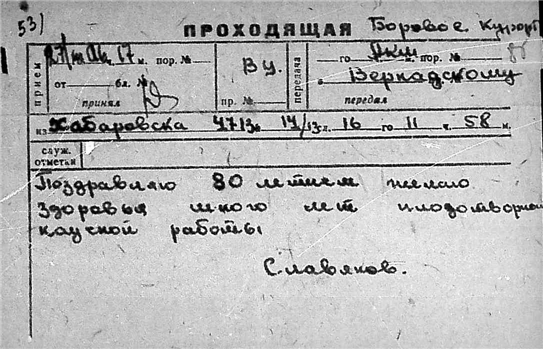 53)
ПРОХОДЯЩАЯ Боровое Курорт
прием ч. м. пор. № Ву. передача го ч. м. пор. №
от бл. № Вернадскому
принял пр. № передал
из Хабаровска 4713 17/13 сл. 16 го 11 ч. 58 м.
служ. отметки
Поздравляю 80 летием желаю
здоровья много лет плодотворной
научной работы
Славянов.